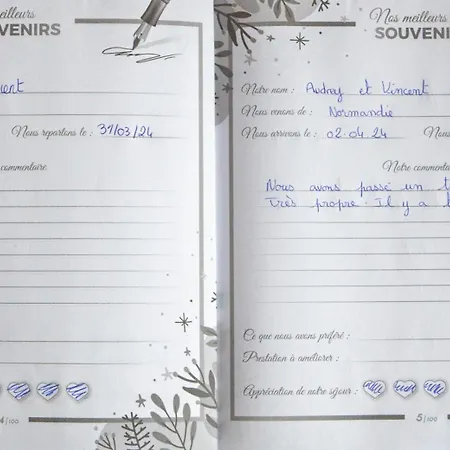 meilleurs
VENIRS
Nous repartons le : 31/03/24
commentaire
4/100
Nos meilleurs
SOUVENI
Notre nom : Audrey et Vincent
Nous venons de : Normandie
Nous arrivons le : 02.04.24 Nous
Notre commenta
Nous avons passé un t
Très propre. Il y a
Ce que nous avons préféré :
Prestation à améliorer :
Appréciation de notre séjour :
5/100